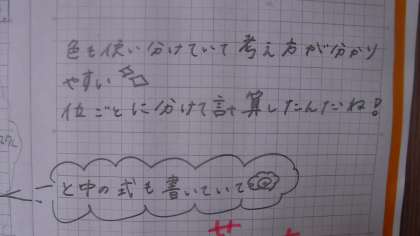 色も使い分けていて考え方が分かり
やすい
位ごとに分けて計算したんだね!
と中の式も書いていて